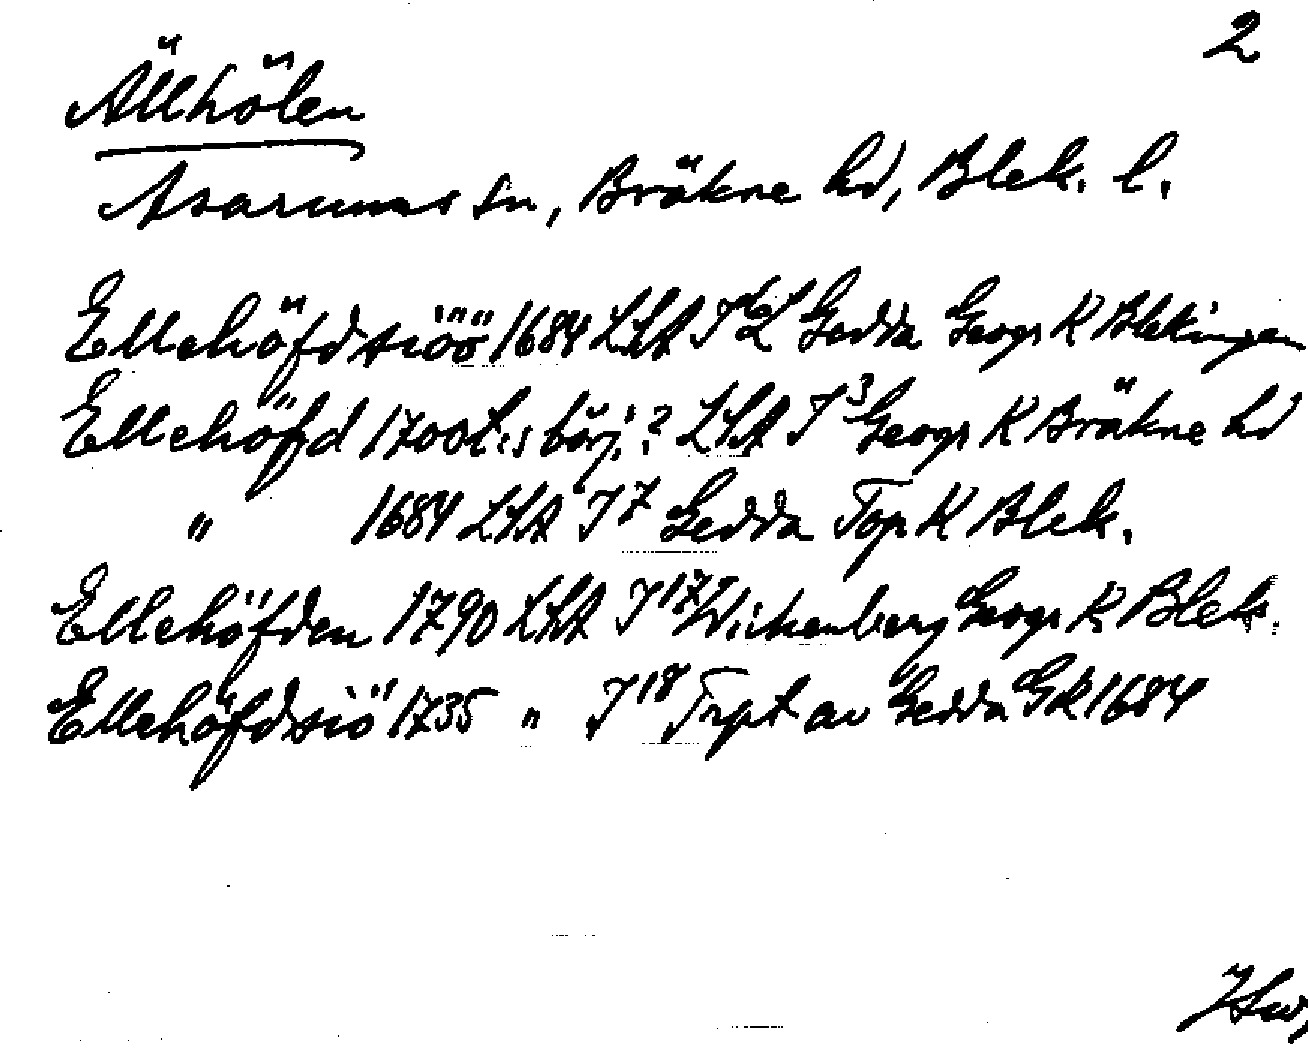 2
Ällhölen
Asarums sn, Bräkne hd, Blek. l.
Ellehöfdsiöö 1684 LSA Gedda Geogr K Blekingen
Ellehöfd 1700t:s börj.? LSA J3 Geogr K Bräkne hd
" 1684 LSA J7 Gedda Top K Blek.
Ellehöfden 1790 LSA J17 Wickenberg Geogr K Blek.
Ellehöfdsiö 1735 " J18 Trpt av Gedda GK 1684